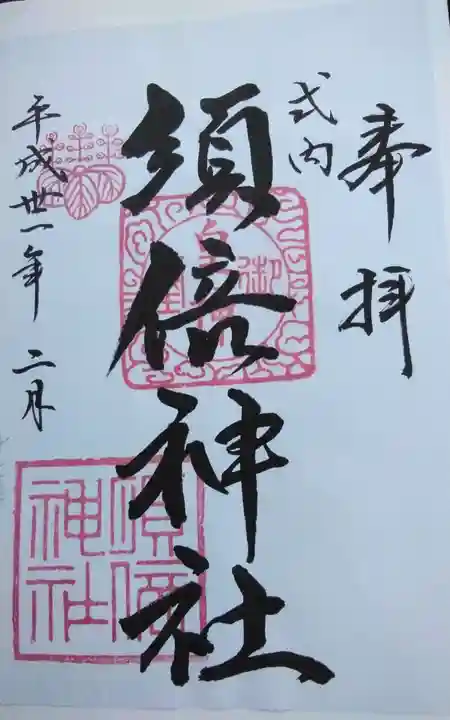 奉拝
式内
須倍神社
平成卅一年 二月
須倍
神社